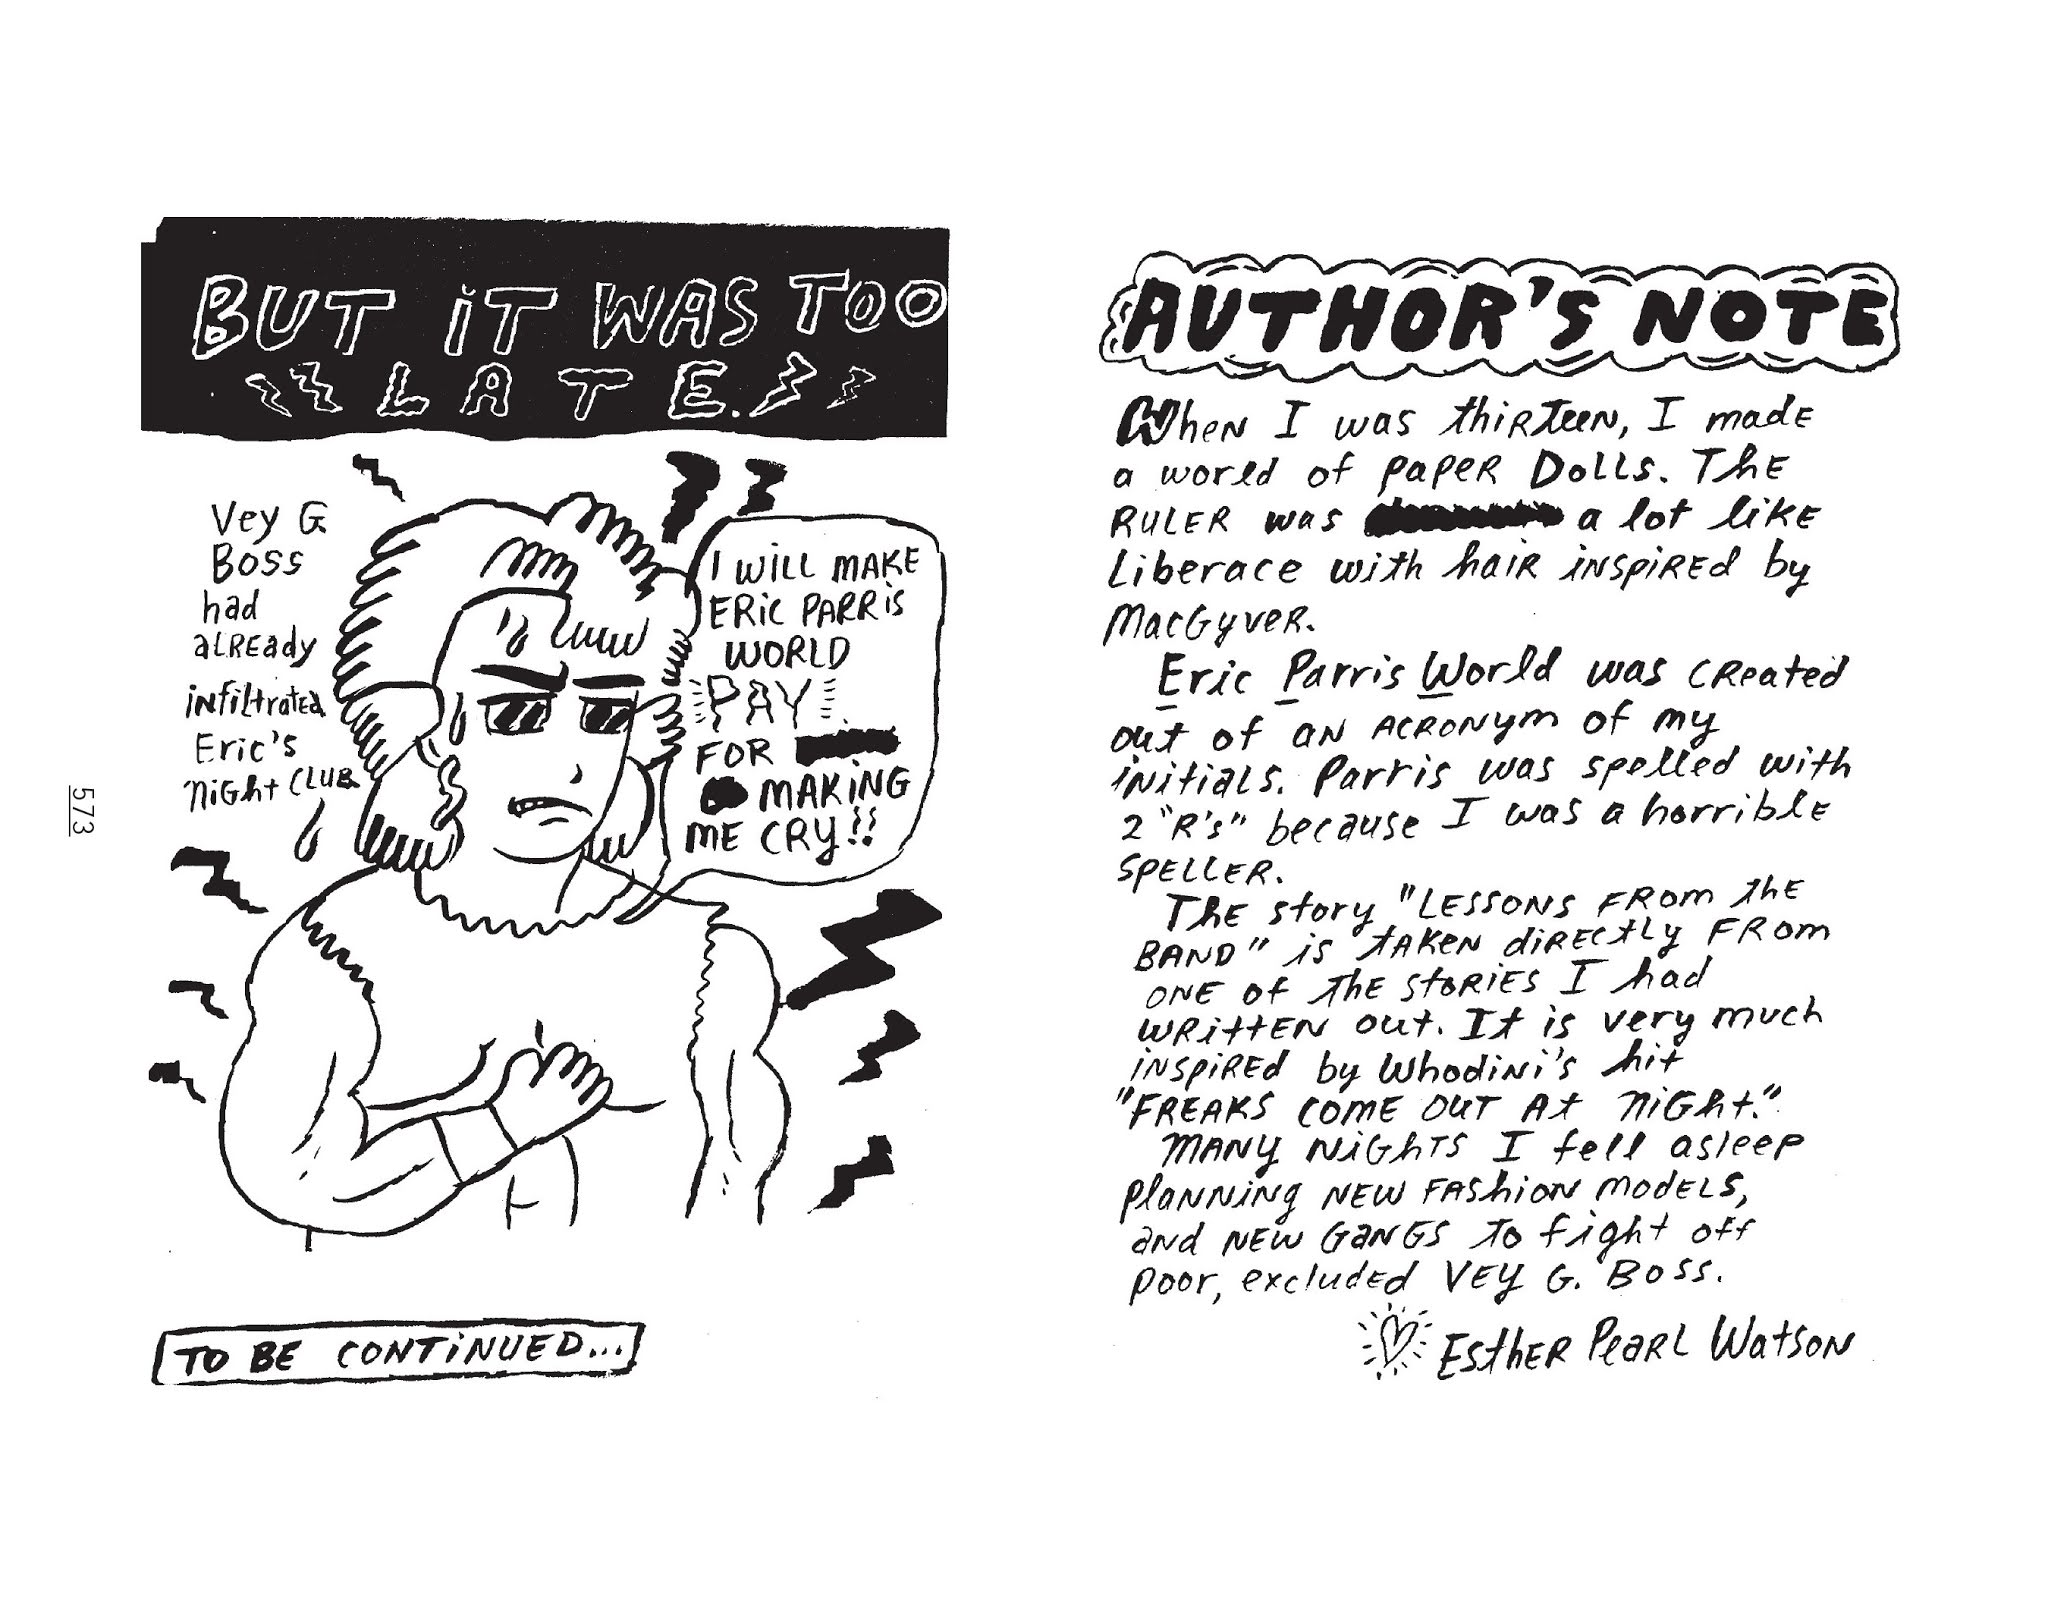 BUT IT WAS TOO
LATE.
Vey G
Boss
had
already
infiltrated
Eric's
Night Club.
I WILL MAKE
ERIC PARRIS
WORLD
PAY
FOR
MAKING
ME CRY!!
TO BE CONTINUED...
573
AUTHOR'S NOTE
When I was thirteen, I made
a world of paper Dolls. The
RULER was a lot like
Liberace with hair inspired by
MacGyver.
Eric Parris World was created
out of an acronym of my
initials. Parris was spelled with
2 "R's" because I was a horrible
speller.
The story "LESSONS FROM the
BAND" is taken directly from
one of the stories I had
written out. It is very much
inspired by Whodini's hit
"FREAKS COME OUT At Night."
Many nights I fell asleep
planning new fashion models,
and new gangs to fight off
poor, excluded VEY G. BOSS.
Esther Pearl Watson